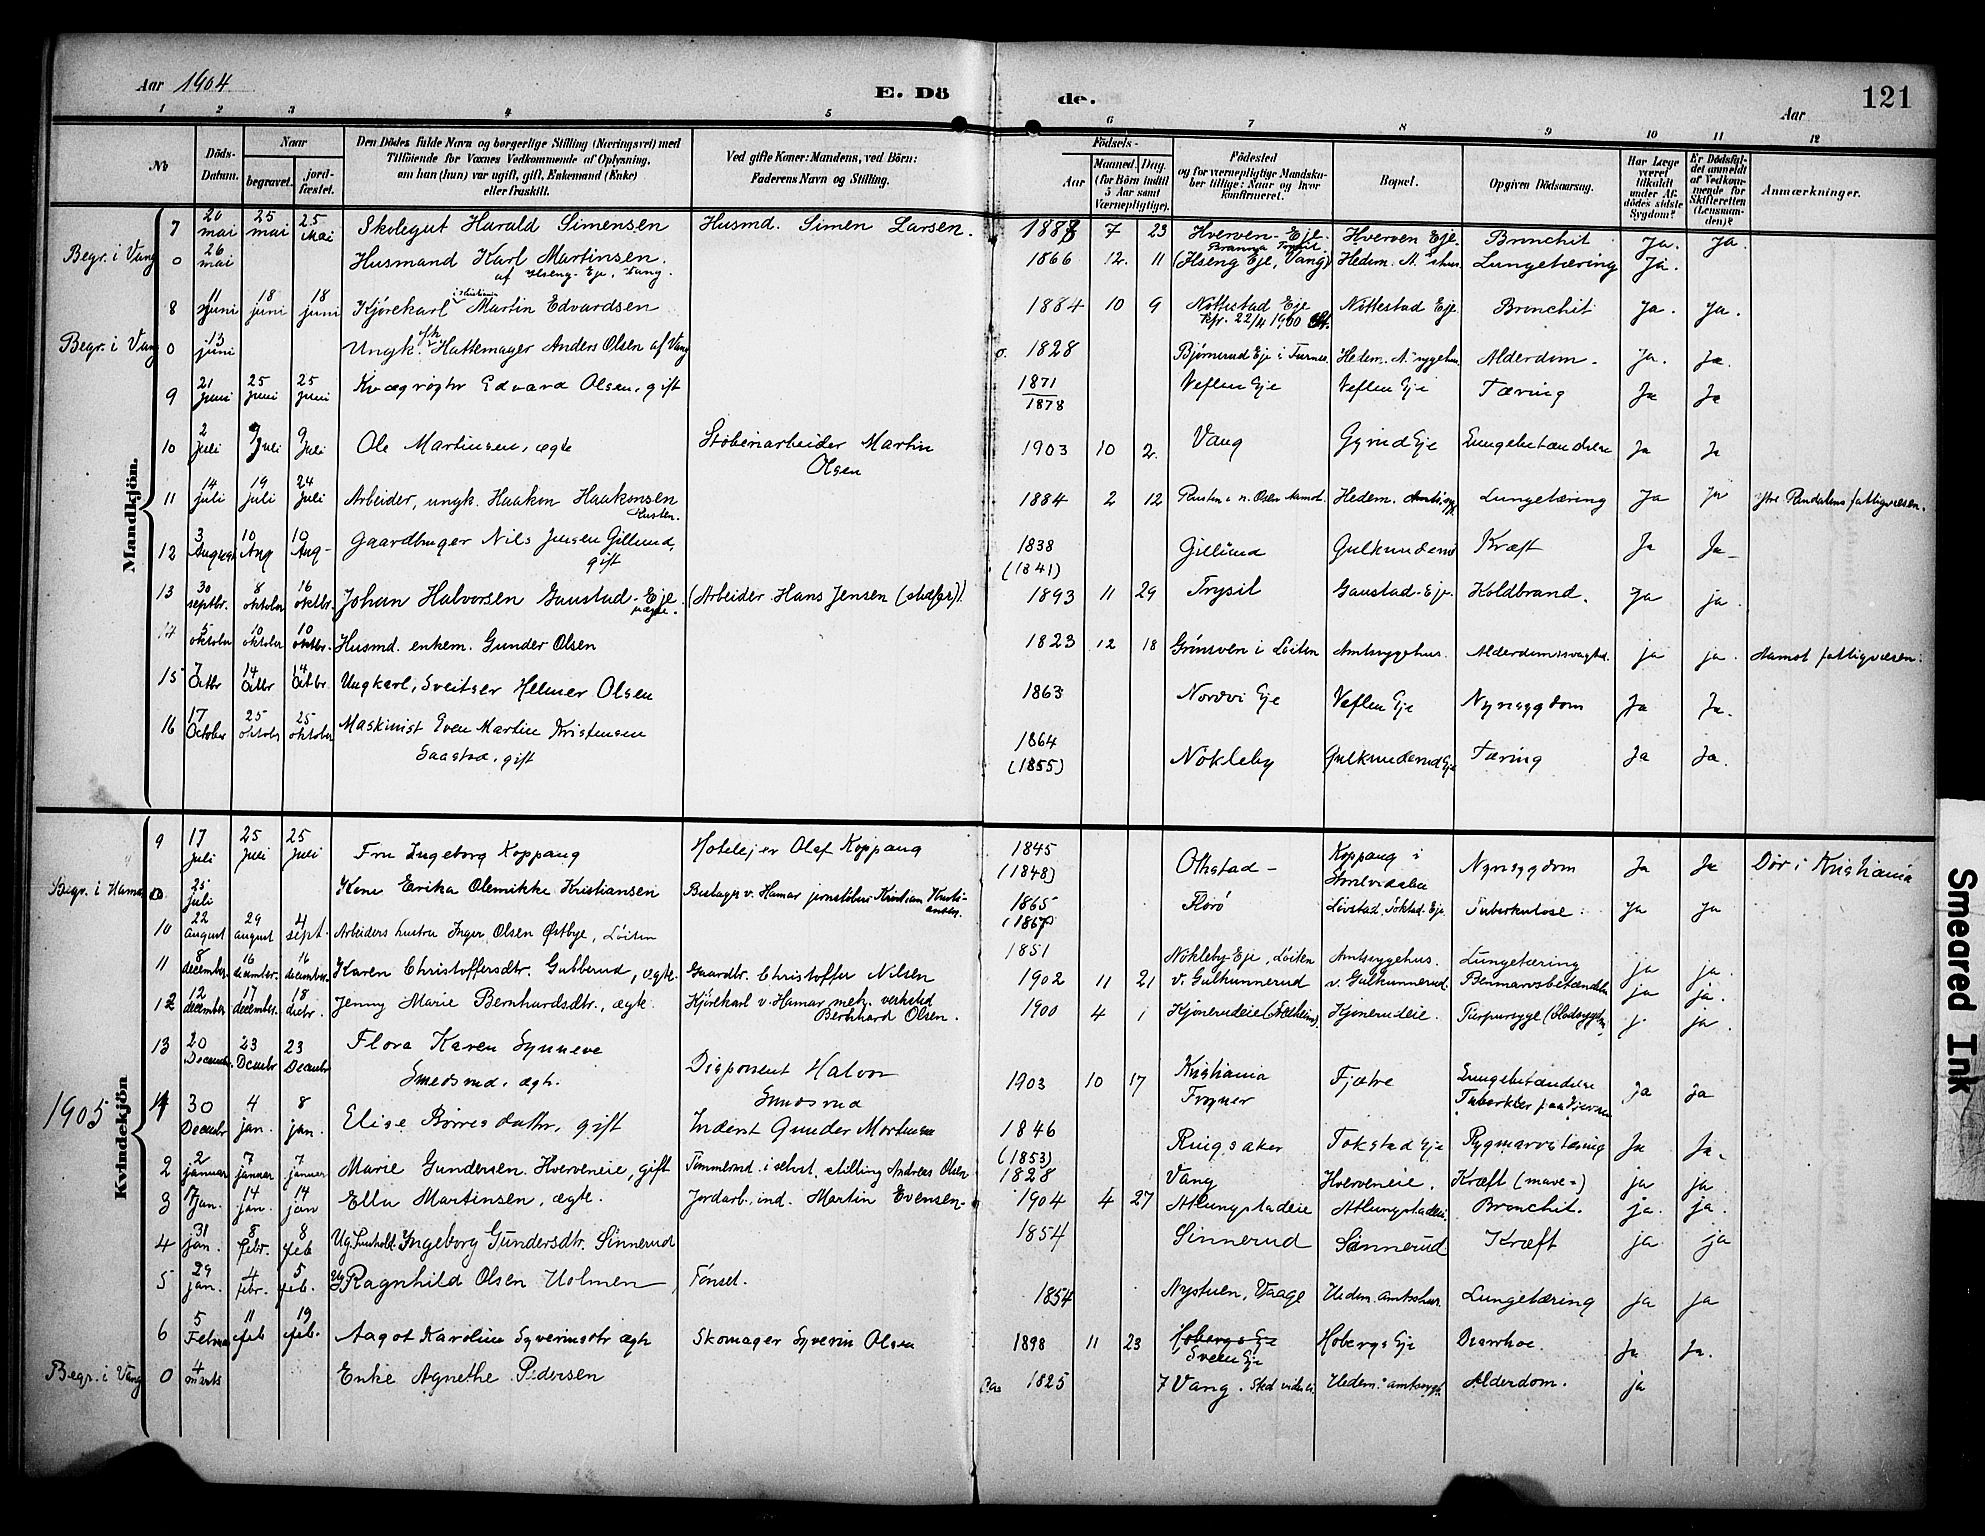 Aar 1904
E. Dö de.
121
Aar
1 2 3 4 5 6 7 8 9 10 11 12
No
Döds-Datum.
Naar
begravet.
jord-fæstet.
Den Dödes fulde Navn og borgerlige Stilling (Næringsvei) med
Tilföiende for Voxnes Vedkommende af Oplysning,
om han (hun) var ugift, gift, Enkemand (Enke)
eller fraskilt.
Ved gifte Koner: Mandens, ved Börn:
Faderens Navn og Stilling.
Födsels-
Aar
Maaned. Dag.
(for Börn indtil
5 Aar samt
Værnepligtige).
Födested
og for værnepligtige Mandska-
ber tillige: Naar og hvor
konfirmeret.
Bopæl.
Opgiven Dödsaarsag.
Har Læge
været
tilkaldt
under Af-
dödes sidste
Sygdom?
Er Dødsfal-
det anmeldt
af Vedkom-
mende for
Skifteretten
(Lensman-
den)?
Anmærkninger.
Mandkjön.
7 20 mai 25 mai 25 Mai Skolegut Harald Simensen Husmd. Simen Larsen. 1888 7 23 Hverven-Eje. Hverven Eje. Bronchit Ja. Ja.
Begr. i Vang 0 26 mai Husmand Karl Martinsen. af Ilseng-Eje, Vang. 1866 12. 11 (Ilseng Eje, Vang) Hedem. A. Lungetæring Ja.
8 11 juni 18 juni 18 juni Kjørekarl i Kristiania Martin Edvardsen 1884 10 9 Nøttestad Eje kfr. 22/4 1900 St. Nøttestad Eje Bronchit Ja. Ja.
Begr. i Vang 0 13 juni Ungk. fh Hattemager Anders Olsen af Vang 1828 Bjørnerud Eje i Furnes Hedem. A. sygehus. Alderdom. Ja. Ja.
9 21 Juni 25 Juni 25 juni Kvægrøgter Edvard Olsen, gift 1871 1878 Veflen Eje Veflen Eje Tæring Ja Ja
10 2 Juli 9 Juli 9 Juli Ole Martinsen, ægte Støberiarbeider Martin Olsen 1903 10 2. Vang Gyrud Eje Lungebetændelse Ja Ja
11 14 juli 19 juli 24 Juli Arbeider, ungk. Haakon Haakonsen Rusten. 1884 2 12 Rusten i n. Osen Aamot. Hedem. Amtssyg. Lungetæring Ja Ja Ytre Rendalens fattigvæsen.
12 3 August 10 Aug 10 Aug- Gaardbruger Nils Jensen Gillund, gift 1838 (1841) Gillund Gulkunderud Kræft Ja Ja-
13 30 septbr. 8 oktober 16 oktbr. Johan Halvorsen Gaustad-Eje uægte. (Arbeider Hans Jensen (stedfar)). 1893 11 29 Trysil Gaustad-Eje. Koldbrand. Ja ja.
14 5 oktober 10 oktober 10 oktbr. Husmd. enkem. Gunder Olsen 1823 12 18 Grönsven i Löiten Amtssygehus. Alderdomssvaghed. ja ja. Aamot fattigvæsen.
15 7 Octbr 14 Octbr 14 Octbr. Ungkarl, Sveitser Helmer Olsen 1863 Nordvi Eje Veflen Eje Nyresygdom Ja Ja.
16 17 October 25 oktober 25 oktober Maskinist Even Martin Kristensen Saastad, gift 1864 (1855) Nökleby Gulkunderud Eje Tæring Ja Ja.
Kvindekjön
9 17 Juli 25 Juli 25 Juli Fru Ingeborg Koppang Hotelejer Olaf Koppang 1845 (1848) Othstad- Koppang i Storelvdalen Nyresygdom Ja Ja Dør i Kristiania
Begr. i Hamar 0 25 juli Kone Erika Olemikke Kristiansen v. Hamar jernstøberi Kristian Kristiansen. 1865 (1867) Florö Løvstad, Tokstad-Eje Tuberkulose. Ja Ja
10 22 august 29 august 4 sept. Arbeiders hustru Inger Olsen Østbye, Löiten 1851 Nökleby Eje, Löiten Amtssygehus. Lungetæring ja ja.
11 8 december. 16 december. 16 december. Karen Christoffersdtr. Gubberud, ægte. Gaardbr. Christoffer Nilsen 1902 11 21 v. Gulkunnerud v. Gulkunnerud. Benmarvsbetændelse ja ja.
12 12 december 17 december. 18 decbr. Jenny Marie Bernhardsdtr., ægte. Kjørekarl v. Hamar mek. verksted Bernhard Olsen. 1900 4 1 Kjønerudeie (Fælheim). Kjønerudeie. Purpursyge (Blodsygdom) j. ja.
13 20 December. 23 Decmbr 23 Decmbr Flora Karen Synneve Smedsrud, ægte. Disponent Halvor Smedsrud 1903 10 17 Kristiania Frogner Fjætre Lungebetændelse Tuberkler paa Hjernen Ja Ja
14 30 Decembr 4 jan. 8 jan. Elise Børresdatter, gift Inderst Gunder Mortensen 1846 (1853) Ringsaker Tokstad Eje Rygmarvstæring Ja Ja-
1905
2 2 januar 7 januar 7 januar Marie Gundersen Hverveneie, gift Tømmermd. i selvst. stilling Andreas Olsen 1828 Vang Hverveneie. Kræft (mave-) ja ja.
3 7 jan. 14 jan. 14 jan Ella Martinsen, ægte. Jordarb. ind. Martin Evensen. 1904 4 27 Atlungstadeie Atlungstadeie, Bronchit. ja. ja.
4 31 jan. 8 febr. 8 feb Ug. Ingeborg Gundersdtr. Sinnerud 1854 Sinnerud Sinnerud Kræft ja ja
5 29 jan. 4 febr. 5 feb. Ug Ragnhild Olsen Holmen, Tønset. 1854 Nystuen, Vaage Hedem. amtshus. Lungetæring ja ja
6 5 Februar 11 feb 19 feb. Aagot Karoline Syverinsdtr ægte Skomager Syverin Olsen 1898 11 23 Hobergs Eje Sveen Eje Hobergs Eje Diarrhoe. Ja Ja.
Begr. i Vang 0 4 marts Enke Agnethe Pedersen 1825 Vang. Hedem. amtssygh. Alderdom. ja
Smeared Ink